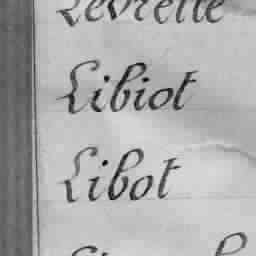 Levrette
Libiot
Libot